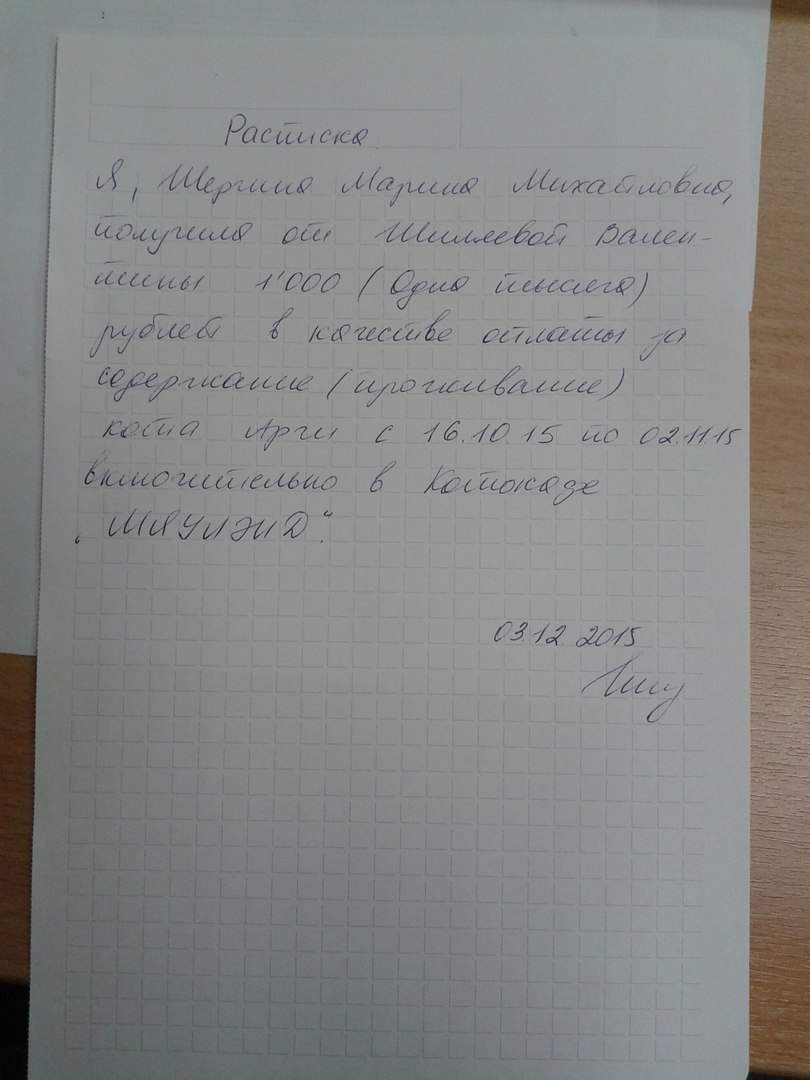 Расписка
Я, Шергина Марина Михайловна,
получила от Шиляевой Вален-
тины 1'000 (Одна тысяча)
рублей в качестве оплаты за
содержание (проживание)
кота Арги с 16.10.15 по 02.11.15
включительно в Котокафе
"МЯУЛЭНД".
03.12.2015